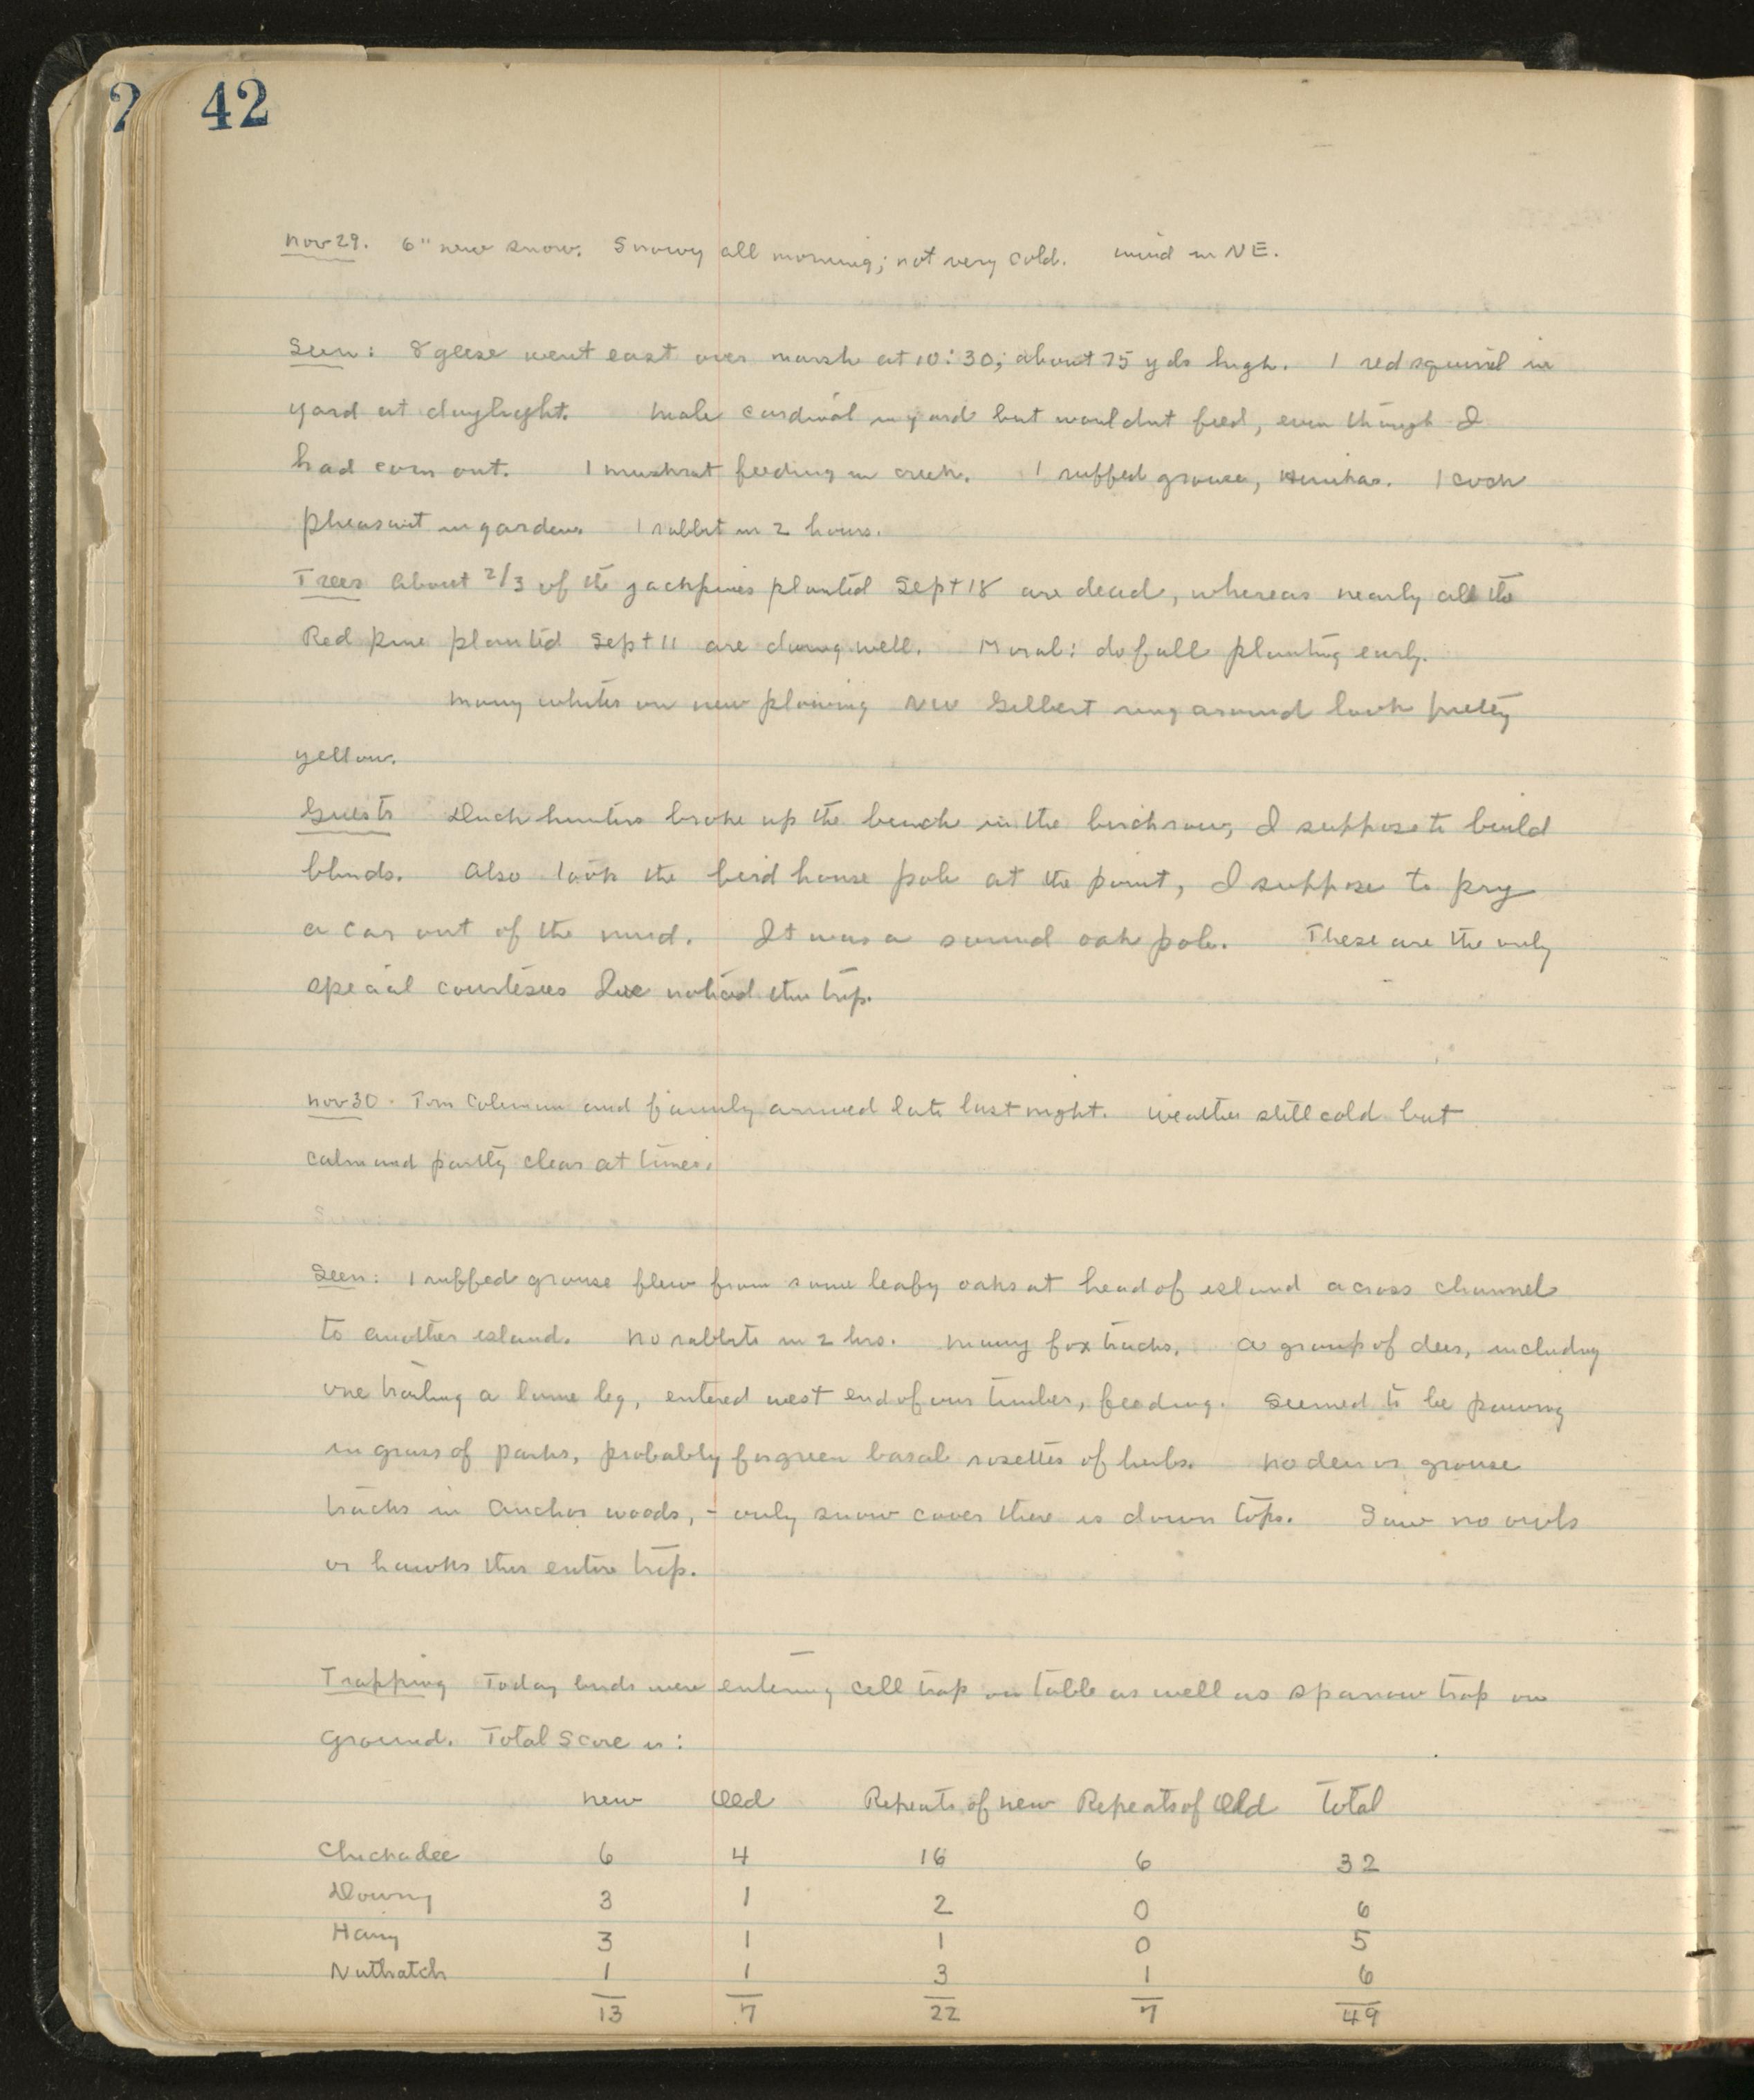 42
Nov 29. 6" new snow. Snowy all morning; not very cold. Wind in NE.
Seen: 8 geese went east over marsh at 10:30; about 75 yds high. 1 red squirrel in
yard at daylight. Male cardinal in yard but wouldnt feed, even though I
had corn out. 1 muskrat feeding in creek. 1 ruffed grouse, 1 cock
pheasant in garden. 1 rabbit in 2 hours.
Trees About 2/3 of the jackpines planted Sept 18 are dead, whereas nearly all the
Red pine planted Sept 11 are doing well. Moral: do fall planting early.
Many whites on new plowing NW Gilbert ring around look pretty
yellow.
Guests Duck hunters broke up the bench in the birchrow, I suppose to build
blinds. Also took the bird house pole at the point, I suppose to pry
a car out of the mud. It was a sound oak pole. These are the only
special courtesies Ive noticed this trip.
Nov 30. Tom Coleman and family arrived late last night. Weather still cold but
calm and partly clear at times.
Seen: 1 ruffed grouse flew from some leafy oaks at head of island across channel
to another island. No rabbits in 2 hrs. Many fox tracks. A group of deer, including
one trailing a lame leg, entered west end of our timber, feeding. Seemed to be pawing
in grass of parks, probably for green basal rosettes of herbs. No deer or grouse
tracks in Anchor woods, - only snow cover there is down tops. Saw no owls
or hawks this entire trip.
Trapping Today birds were entering cell trap on table as well as sparrow trap on
ground. Total Score is:
New Old Repeats of new Repeats of Old Total
Chickadee 6 4 16 6 32
Downy 3 1 2 0 6
Hairy 3 1 1 0 5
Nuthatch 1 1 3 1 6
13 7 22 7 49